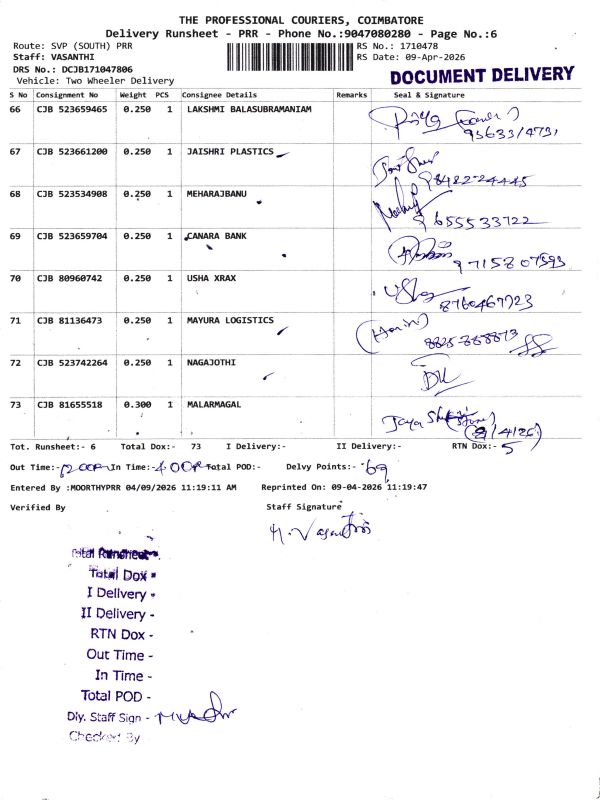 THE PROFESSIONAL COURIERS, COIMBATORE
Delivery Runsheet - PRR - Phone No.:9047080280 - Page No.:6
Route: SVP (SOUTH) PRR RS No.: 1710478
Staff: VASANTHI RS Date: 09-Apr-2026
DRS No.: DCJB171047806
Vehicle: Two Wheeler Delivery DOCUMENT DELIVERY
S No Consignment No Weight PCS Consignee Details Remarks Seal & Signature
66 CJB 523659465 0.250 1 LAKSHMI BALASUBRAMANIAM
67 CJB 523661200 0.250 1 JAISHRI PLASTICS
9842224445
68 CJB 523534908 0.250 1 MEHARAJBANU
9655533722
69 CJB 523659704 0.250 1 CANARA BANK
9715807593
70 CJB 80960742 0.250 1 USHA XRAX
8760467723
71 CJB 81136473 0.250 1 MAYURA LOGISTICS
72 CJB 523742264 0.250 1 NAGAJOTHI
73 CJB 81655518 0.300 1 MALARMAGAL
Tot. Runsheet:- 6 Total Dox:- 73 I Delivery:- II Delivery:- RTN Dox:- 5
Out Time:- In Time:- 4.00P Total POD:- Delvy Points:- 69
Entered By :MOORTHYPRR 04/09/2026 11:19:11 AM Reprinted On: 09-04-2026 11:19:47
Verified By Staff Signature
Total Runsheet -
Total Dox -
I Delivery -
II Delivery -
RTN Dox -
Out Time -
In Time -
Total POD -
Dly. Staff Sign -
Checked By